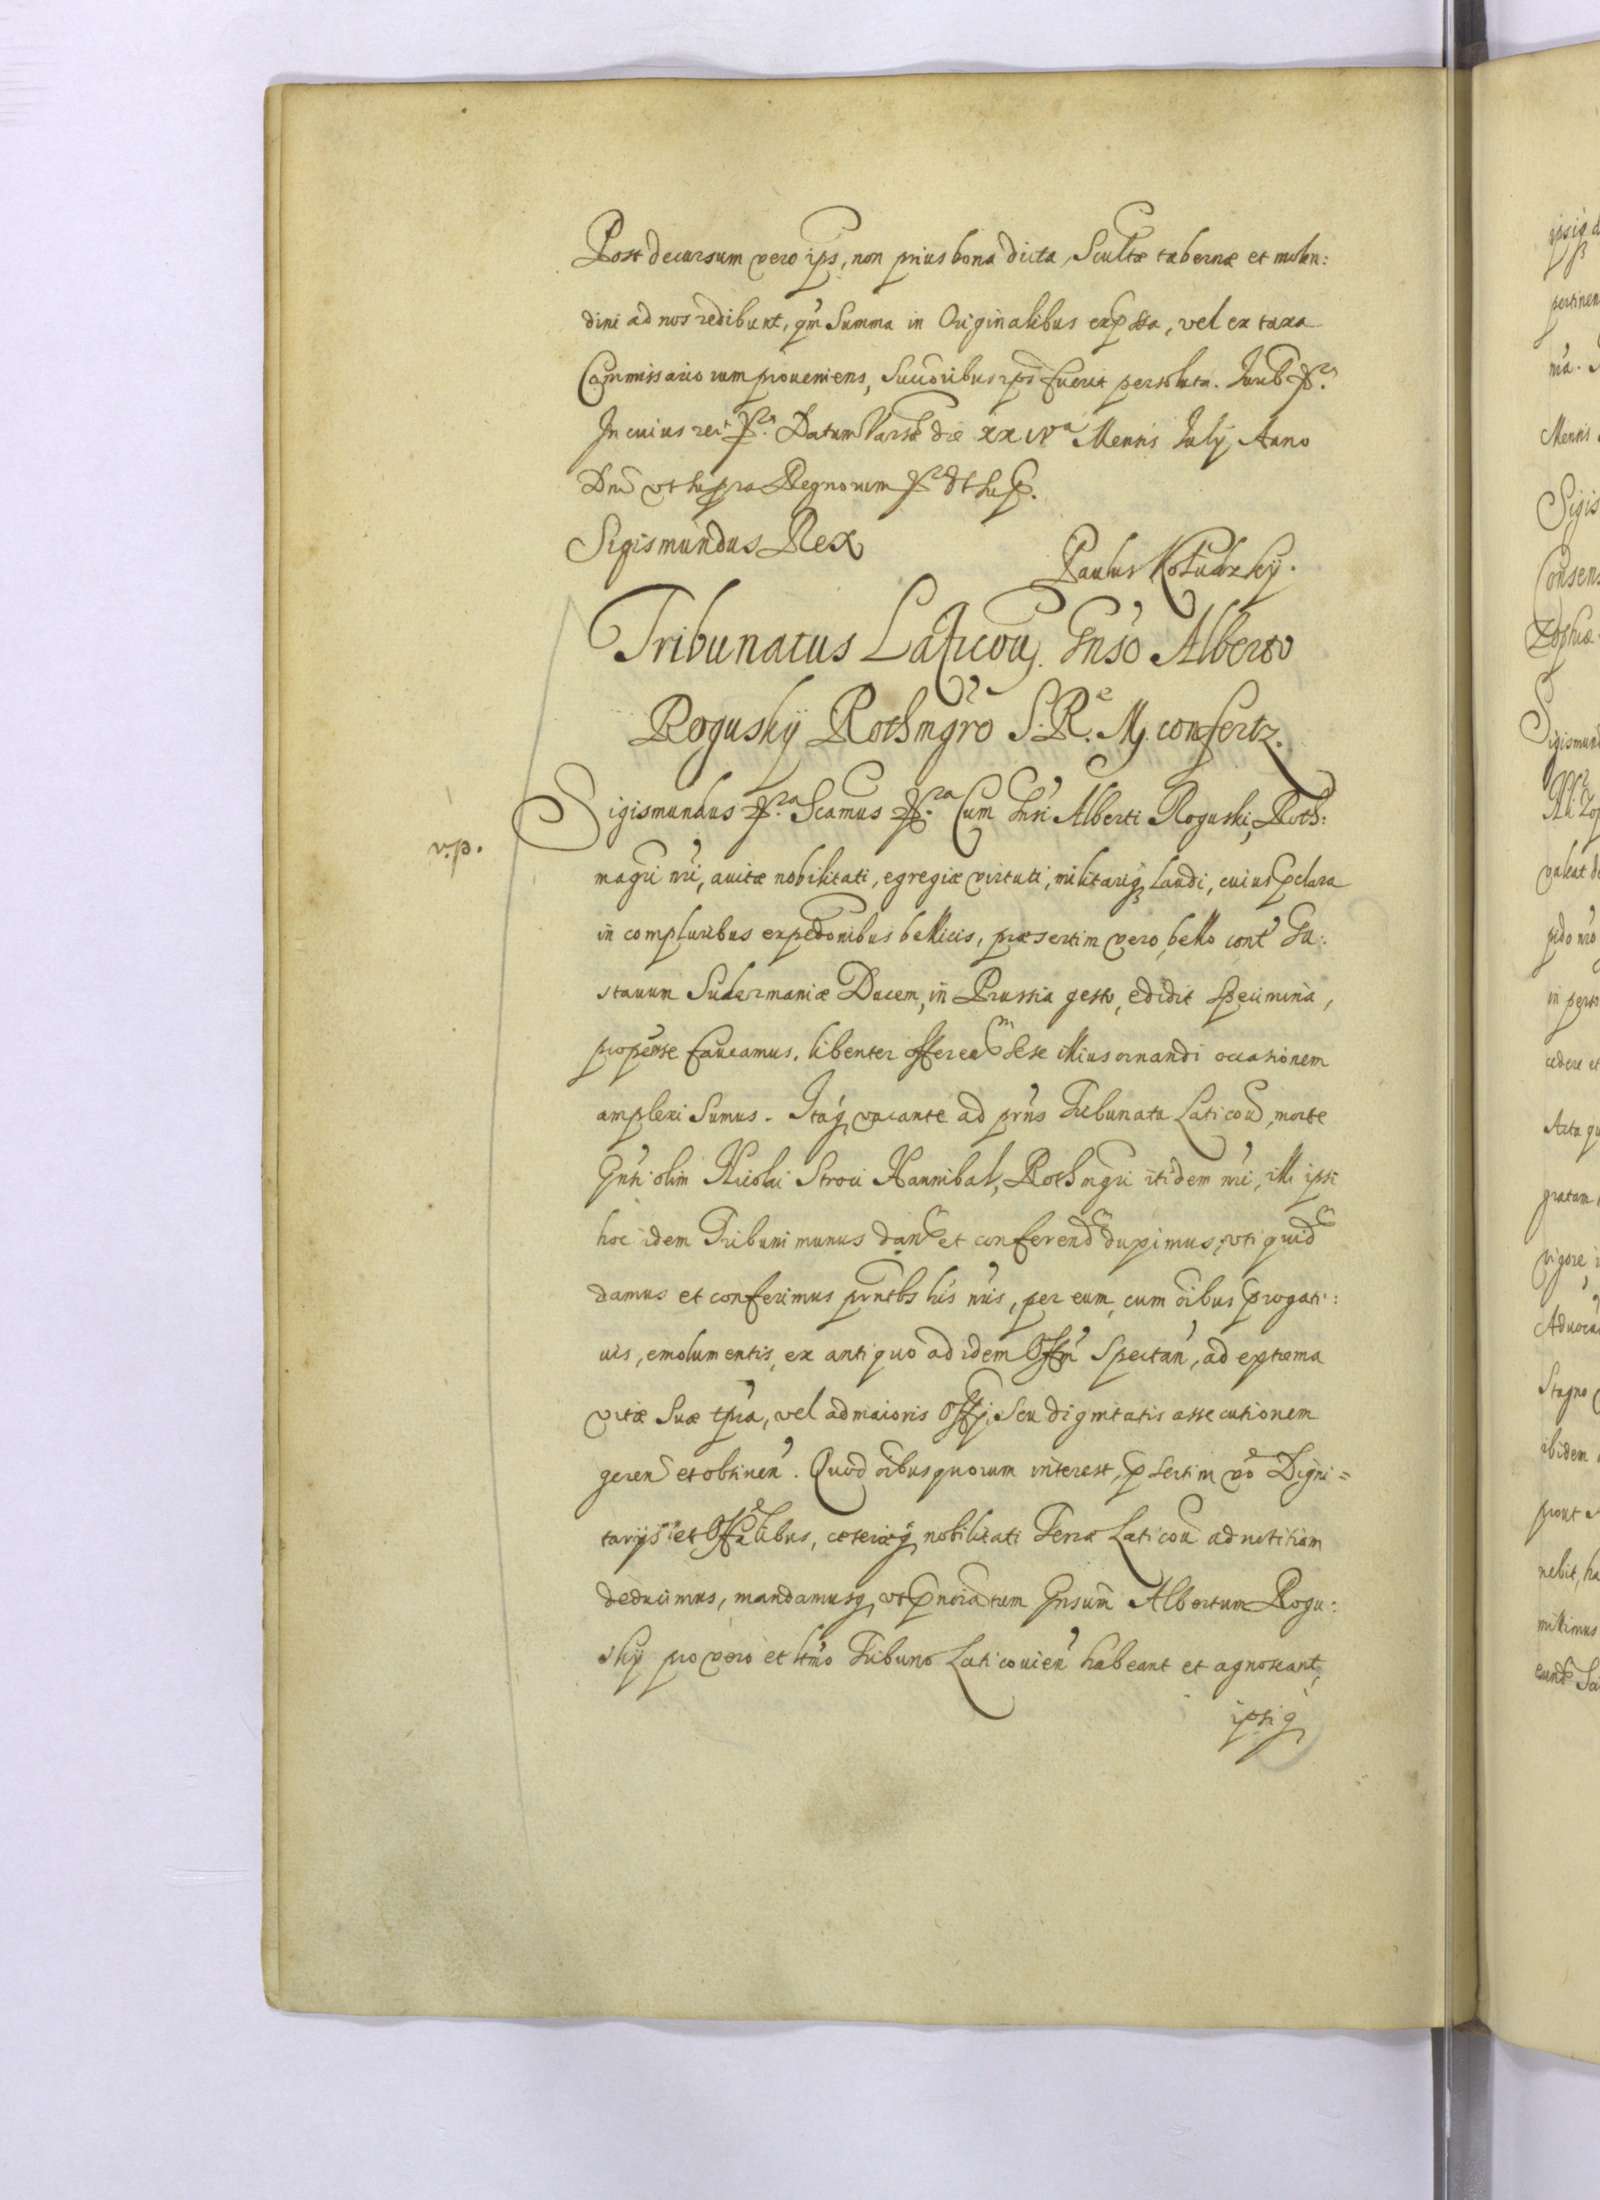 Post decursum vero ips, non prius bona dicta, Scultæ tabernæ et molen:
dini ad nos redibunt, qm̃ Summa in Originalibus exp̃ssa, vel ex taxa
Commissariorum proueniens, Succoribus ips̃ fuerit persoluta. Iurib
In cuius rei Datum Varsæ die xxiv a Mensis July Anno
Dni vt supra Regnorum dt sup.
Sigismundus Rex
Paulus Kołudzky.
Tribunatus Laticou. Gn̄so Alberto
Rogusky Rothmgro S. Re. M. confertz.
v.p.
Sigismundus Scamus Cum Gnsi Alberti Roguski, Roth:
magri nri, auitæ nobilitati, egregiæ virtuti, militariq; laudi, cuius pclara
in compluribus expedonibus bellicis, præsertim vero bello cont' Gu:
stauum Sudermaniæ Ducem, in Prussia gesto, edidit specimina,
propense faueamus, libenter offeren sese illius ornandi occasionem
amplexi sumus. Itaq; vacante ad prns Tribunatu Laticou, morte
Gnsi olim Nicolai Stroci Hannibal, Rothmgri itidem nri, illi ipsi
hoc idem Tribuni munus dan et conferend duximus, vti quid
damus et conferimus prntbs his nris, per eum, cum oibus progati:
uis, emolumentis, ex antiquo ad idem Offm spectan, ad extrema
vitæ suæ tpra, vel ad maioris Offij, seu dignitatis assecutionem
geren et obtinen. Quod oibus quorum interest, psertim vo Digni=
tarijs et Offalibus, cæteræq; nobilitati Terræ Laticou ad notitiam
deducimus, mandamusq; vt pnoiatum Gnsum Albertum Rogu:
sky pro vero et ltmo Tribuno Laticouien habeant et agnoscant,
ipsiq;